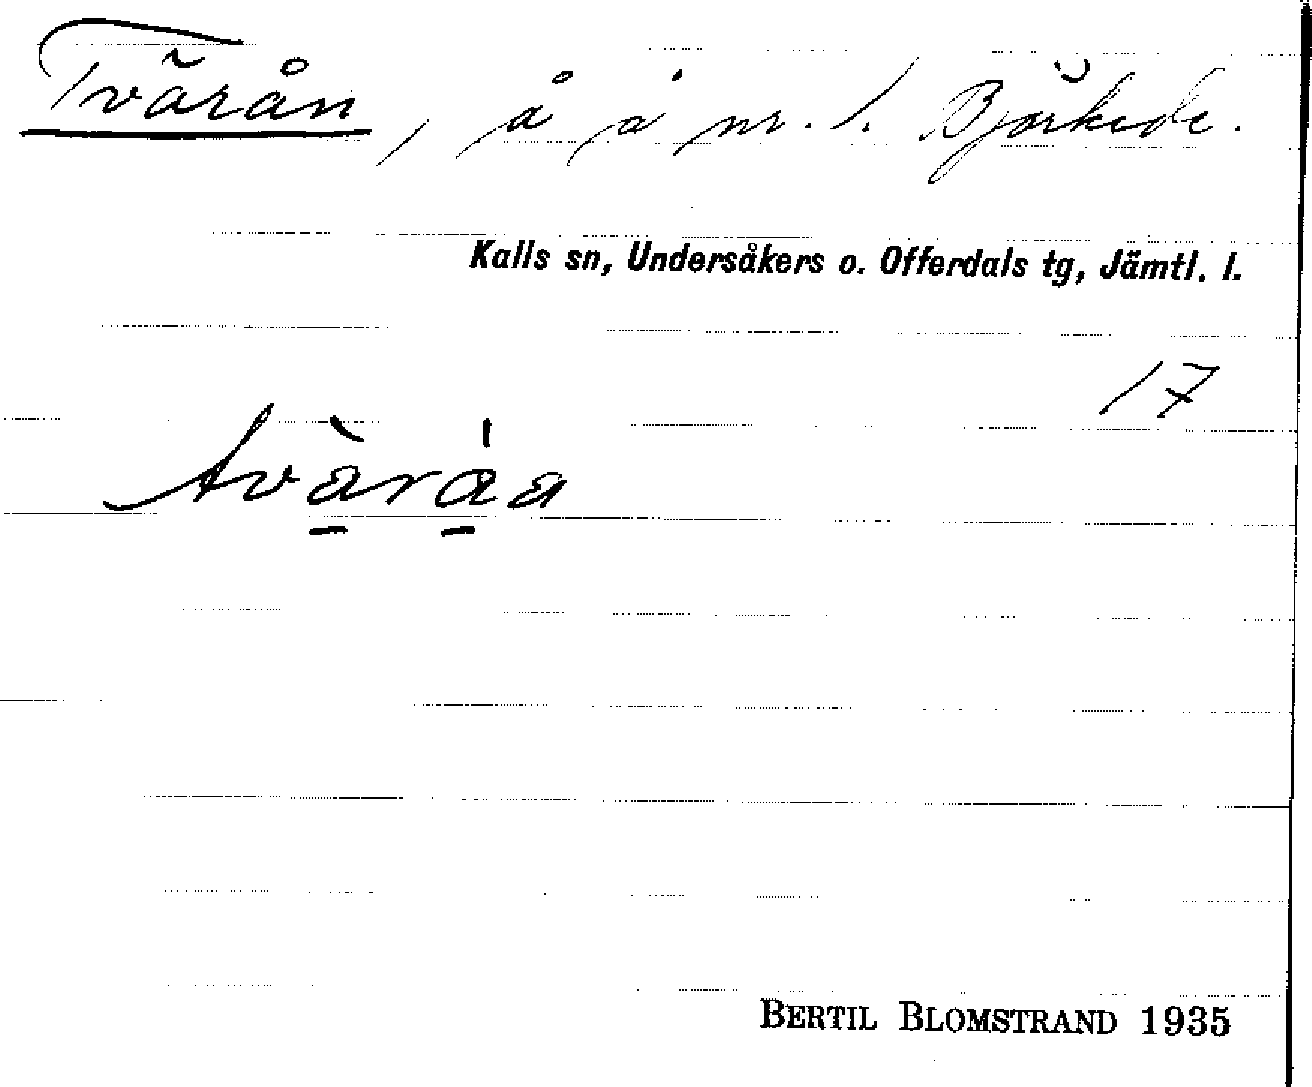 Tvärån, å å nr. 1. Björkede.
Kalls sn, Undersåkers o. Offerdals tg, Jämtl. l.
17
tv̀a̱ràa̱a
BERTIL BLOMSTRAND 1935